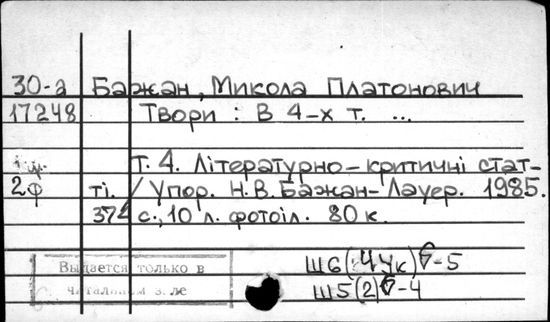 30-а Бажан, Микола Платонович
17248 Твори: В 4-х т. ...
Т. 4. Літературно-критичні стат-
2ф ті. / Упор. Н.В. Бажан-Лауер. 1985.
с., 10 л. фотоіл. 80 к.
Выдается только в
читальном зале
Ш6(4Ук) -5
Ш5(2) -4